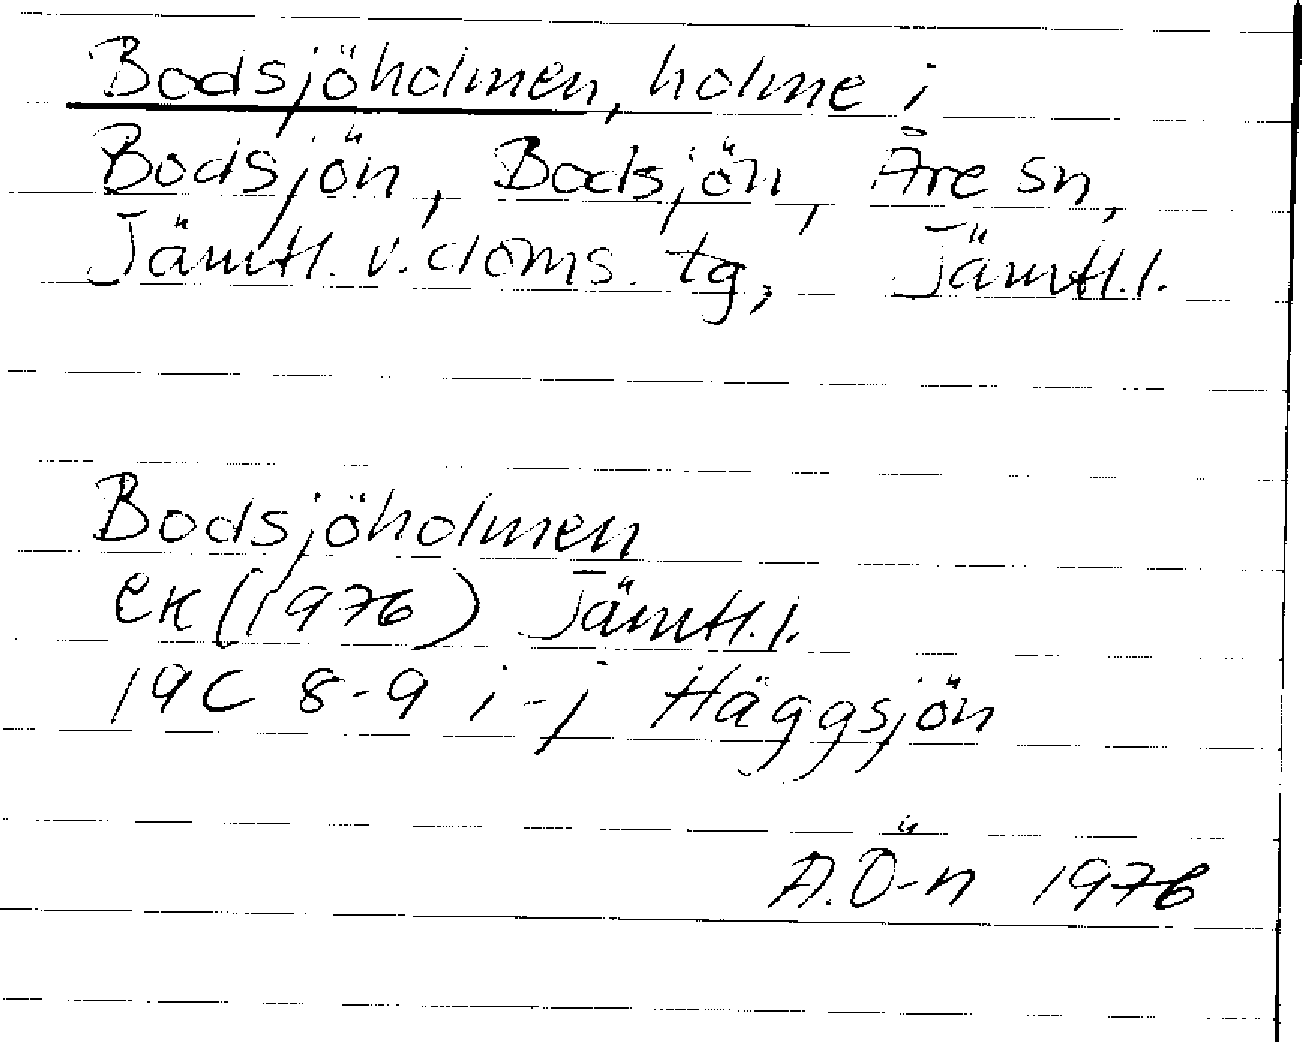 Bodsjöholmen, holme i
Bodsjön, Bodsjön, Åre sn,
Jämtl. v. doms. tg, Jämtl. l.
Bodsjöholmen
ek (1976) Jämtl. l.
19C 8-9 i-j Häggsjön
A.Ö-n 1976